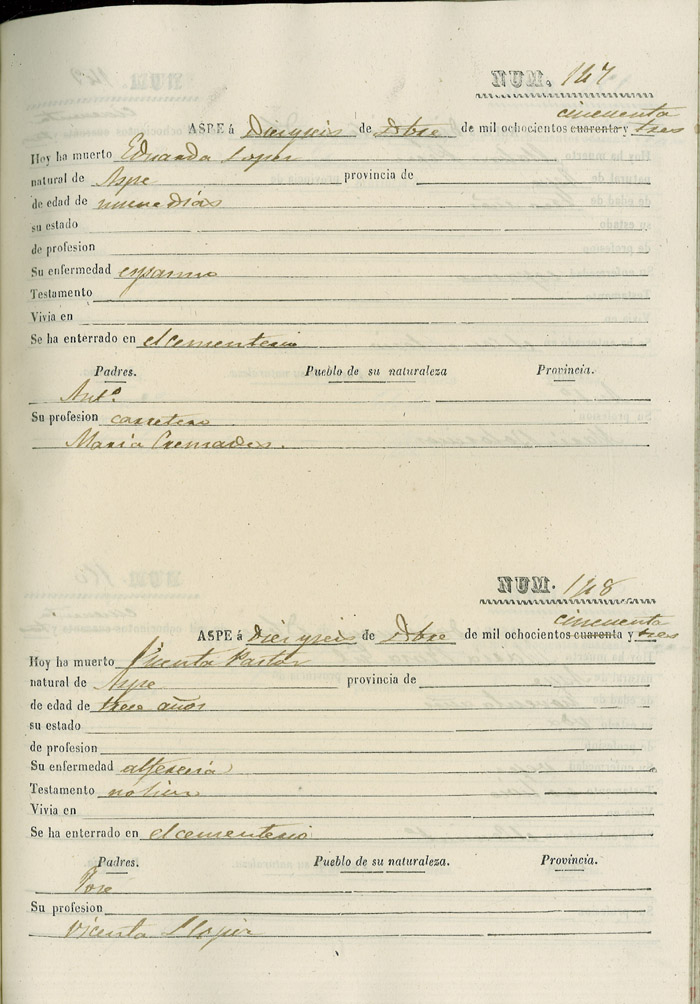 NUM. 147
cincuenta
ASPE á Diez y seis de Dbre de mil ochocientos cuarenta y tres
Hoy ha muerto Eduarda Lopez
natural de Aspe provincia de
de edad de nueve dias
su estado
de profesion
Su enfermedad espasmo
Testamento
Vivia en
Se ha enterrado en el cementerio
Padres. Pueblo de su naturaleza Provincia.
Antº
Su profesion carretero
Maria Cremades.
NUM. 148
cincuenta
ASPE á Diez y seis de Dbre de mil ochocientos cuarenta y tres
Hoy ha muerto Vicenta Pastor
natural de Aspe provincia de
de edad de trese años
su estado
de profesion
Su enfermedad alferecia
Testamento
Vivia en
Se ha enterrado en el cementerio
Padres. Pueblo de su naturaleza. Provincia.
Jose
Su profesion
Vicenta